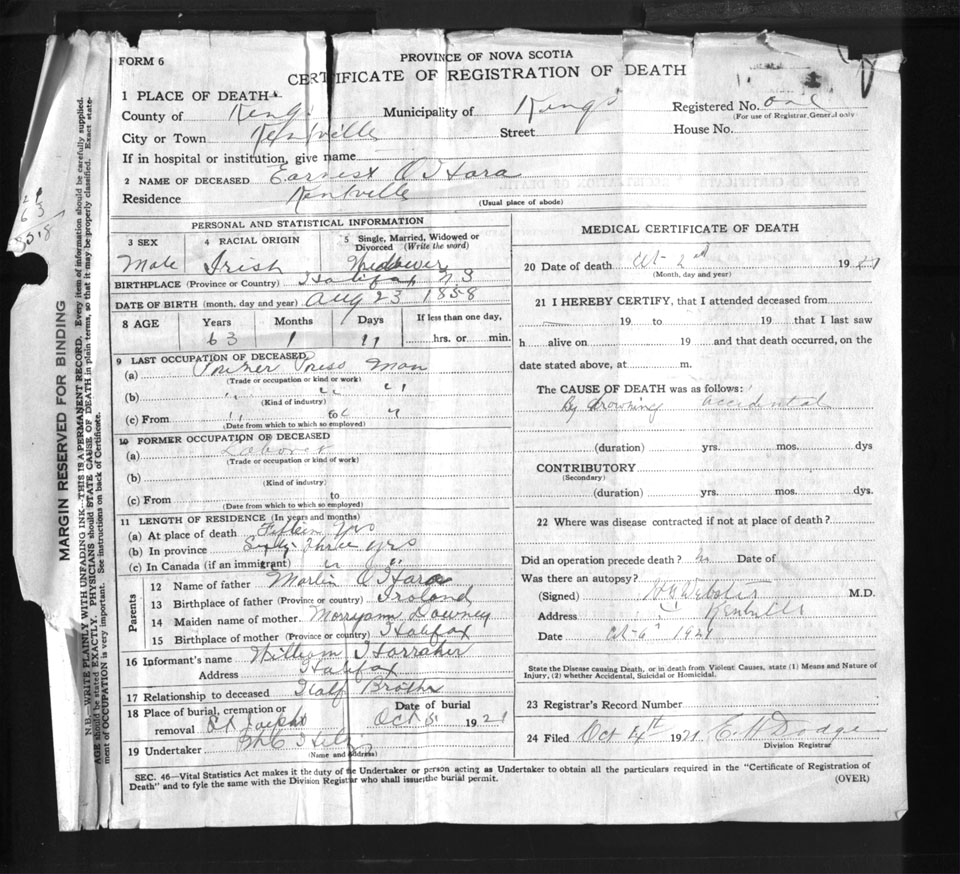 FORM 6
PROVINCE OF NOVA SCOTIA
CERTIFICATE OF REGISTRATION OF DEATH
1 PLACE OF DEATH
County of Kings Municipality of Kings Registered No. one
(For use of Registrar General only)
City or Town Kentville Street House No.
If in hospital or institution, give name
2 NAME OF DECEASED Earnest O'Hara
Residence Kentville
(Usual place of abode)
PERSONAL AND STATISTICAL INFORMATION
3 SEX 4 RACIAL ORIGIN 5 Single, Married, Widowed or Divorced (Write the word)
Male Irish Widower
BIRTHPLACE (Province or Country) Halifax N S
DATE OF BIRTH (month, day and year) Aug 23 1858
8 AGE Years Months Days If less than one day,
63 1 11 hrs. or min.
9 LAST OCCUPATION OF DECEASED
(a) Press Man
(Trade or occupation or kind of work)
(b) " " "
(Kind of industry)
(c) From " to " "
(Date from which to which so employed)
10 FORMER OCCUPATION OF DECEASED
(a) Laborer
(Trade or occupation or kind of work)
(b)
(Kind of industry)
(c) From to
(Date from which to which so employed)
11 LENGTH OF RESIDENCE (In years and months)
(a) At place of death Fifteen yrs
(b) In province Sixty three yrs
(c) In Canada (if an immigrant) " "
Parents
12 Name of father Martin O'Hara
13 Birthplace of father (Province or country) Iroland
14 Maiden name of mother Morryann Downey
15 Birthplace of mother (Province or country) Halifax
16 Informant's name William
Address Halifax
17 Relationship to deceased Half Brother
18 Place of burial, cremation or removal St Josephs Date of burial Oct 5 1921
19 Undertaker
(Name and address)
MEDICAL CERTIFICATE OF DEATH
20 Date of death Oct 2nd 1921
(Month, day and year)
21 I HEREBY CERTIFY, that I attended deceased from
19 to 19 that I last saw
h alive on 19 and that death occurred, on the
date stated above, at m.
The CAUSE OF DEATH was as follows:
By drowning accidental
(duration) yrs. mos. dys
CONTRIBUTORY
(Secondary)
(duration) yrs. mos. dys.
22 Where was disease contracted if not at place of death?
Did an operation precede death? No Date of
Was there an autopsy?
(Signed) Webster M.D.
Address Kentville
Date Oct 1921
State the Disease causing Death, or in death from Violent Causes, state (1) Means and Nature of
Injury, (2) whether Accidental, Suicidal or Homicidal.
23 Registrar's Record Number
24 Filed Oct 4th 1921 E. H. Dodge
Division Registrar
SEC. 46—Vital Statistics Act makes it the duty of the Undertaker or person acting as Undertaker to obtain all the particulars required in the "Certificate of Registration of
Death" and to fyle the same with the Division Registrar who shall issue the burial permit.
(OVER)
MARGIN RESERVED FOR BINDING
N.B. WRITE PLAINLY WITH UNFADING INK—THIS IS A PERMANENT RECORD. Every item of information should be carefully supplied.
AGE should be stated EXACTLY. PHYSICIANS should STATE CAUSE OF DEATH in plain terms, so that it may be properly classified. Exact statement of OCCUPATION is very important. See instructions on back of Certificate.